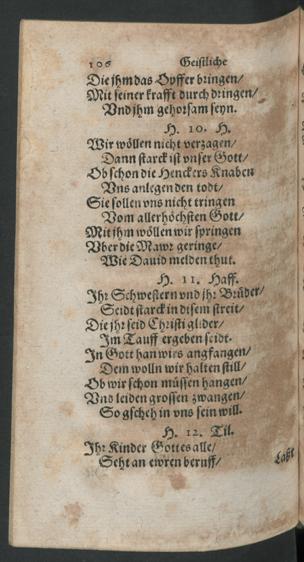 106 Geistliche
Die jhm das Opffer bringen/
Mit seiner krafft durch dringen/
Vnd jhm gehorsam seyn.
H. 10. H.
Wir wöllen nicht verzagen/
Dann starck ist vnser Gott/
Ob schon die Henckers Knaben
Vns anlegen den todt/
Sie sollen vns nicht tringen
Vom allerhöchsten Gott/
Mit jhm wöllen wir springen
Vber die Mawr geringe/
Wie Dauid melden thut.
H. 11. Haff.
Ihr Schwestern vnd jhr Brüder/
Seidt starck in disem streit/
Die jhr seid Christi glider/
Im Tauff ergeben seidt.
In Gott han wirs angfangen/
Dem wolln wir halten still/
Ob wir schon müssen hangen/
Vnd leiden grossen zwangen/
So gscheh in vns sein will.
H. 12. Til.
Ihr Kinder Gottes alle/
Seht an ewren beruff/
Laßt